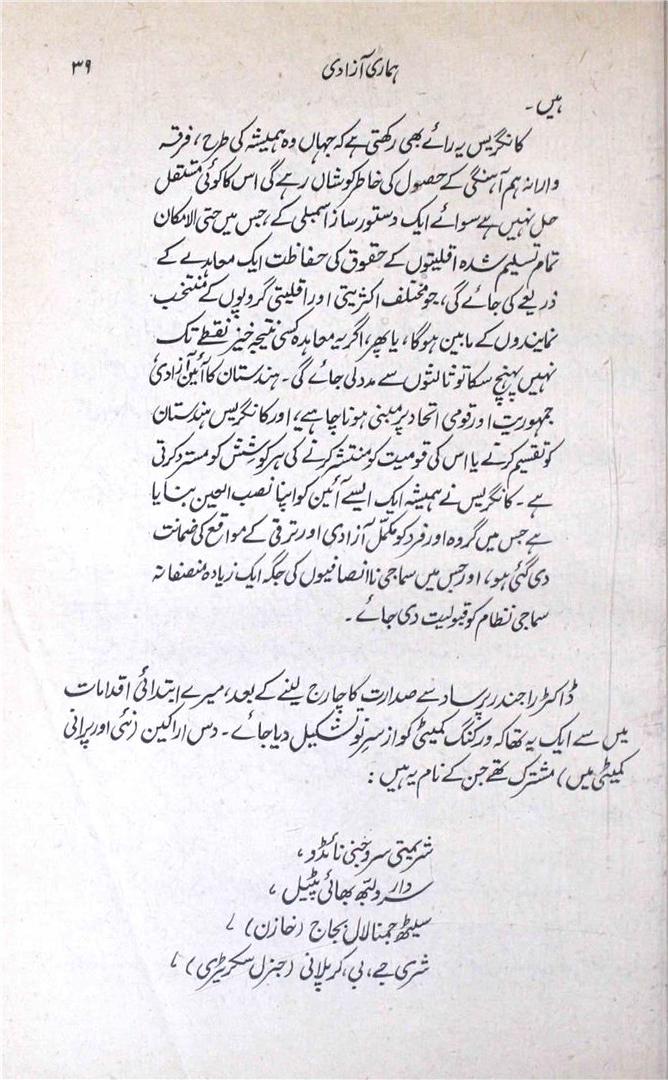 ہماری آزادی ۳۹
ہیں۔
کانگریس یہ رائے بھی رکھتی ہے کہ جہاں وہ ہمیشہ کی طرح، فرقہ
وارانہ ہم آہنگی کے حصول کی خاطر کوشاں رہے گی اس کا کوئی مستقل
حل نہیں ہے سوائے ایک دستور ساز اسمبلی کے، جس میں حتی الامکان
تمام تسلیم شدہ اقلیتوں کے حقوق کی حفاظت ایک معاہدے کے
ذریعے کی جائے گی، جو مختلف اکثریتی اور اقلیتی گروپوں کے منتخب
نمایندوں کے مابین ہوگا، یا پھر، اگر یہ معاہدہ کسی نتیجہ خیز نقطے تک
نہیں پہنچ سکا تو ثالثوں سے مدد لی جائے گی۔ ہندستان کا آئین آزادی
جمہوریت اور قومی اتحاد پر مبنی ہونا چاہیے، اور کانگریس ہندستان
کو تقسیم کرنے یا اس کی قومیت کو منتشر کرنے کی ہر کوشش کو مسترد کرتی
ہے۔ کانگریس نے ہمیشہ ایک ایسے آئین کو اپنا نصب العین بنایا
ہے جس میں گروہ اور فرد کو مکمّل آزادی اور ترقی کے مواقع کی ضمانت
دی گئی ہو، اور جس میں سماجی ناانصافیوں کی جگہ ایک زیادہ منصفانہ
سماجی نظام کو قبولیت دی جائے۔
ڈاکٹر راجندر پرساد سے صدارت کا چارج لینے کے بعد، میرے ابتدائی اقدامات
میں سے ایک یہ تھا کہ ورکنگ کمیٹی کو از سرِنو تشکیل دیا جائے۔ دس اراکین (نئی اور پرانی
کمیٹی میں) مشترک تھے جن کے نام یہ ہیں:
شریمتی سروجنی نائڈو،
سردار ولبھ بھائی پٹیل،
سیٹھ جمنالال بجاج (خازن)،
شری جے، بی، کرپلانی (جنرل سکریٹری)،